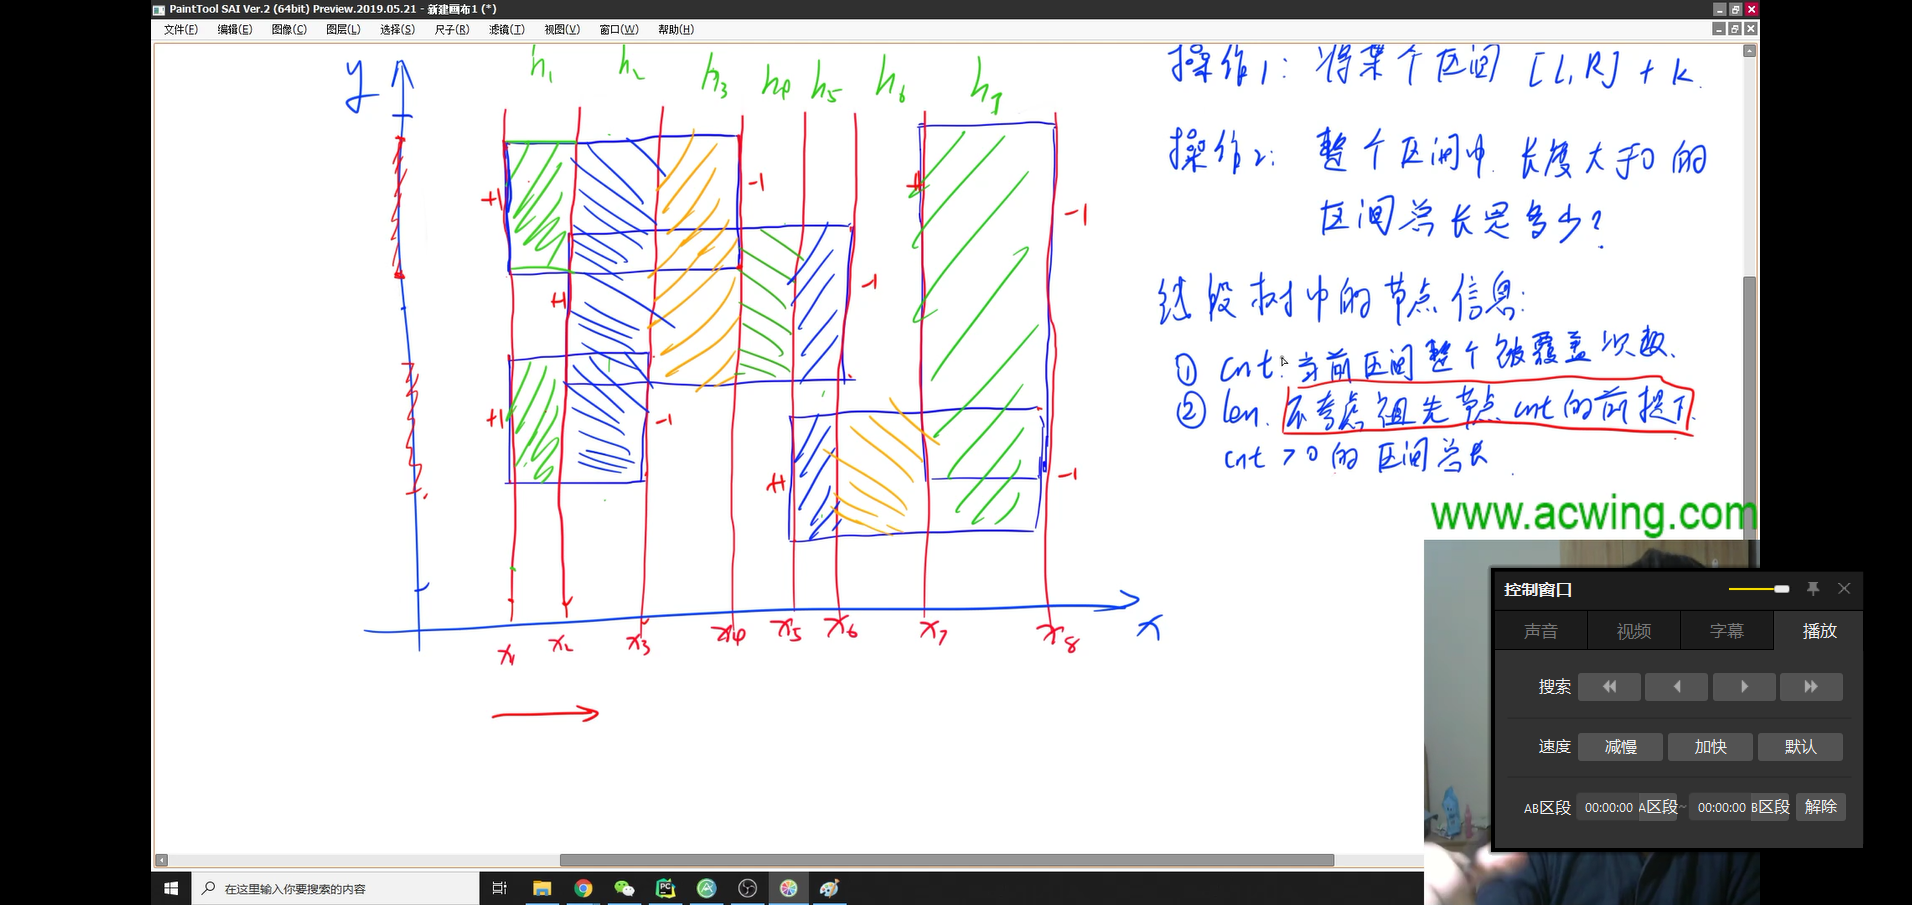 PaintTool SAI Ver.2 (64bit) Preview.2019.05.21 - 新建画布1 (*)
文件(F) 编辑(E) 图像(C) 图层(L) 选择(S) 尺子(R) 滤镜(T) 视图(V) 窗口(W) 帮助(H)
y
h1 h2 h3 h4 h5 h6 h7
+1 -1 +1 -1
+1 -1
+1 -1
+1 -1
x1 x2 x3 x4 x5 x6 x7 x8 x
操作1: 将某个区间 [L,R] + k.
操作2: 整个区间中 长度大于0 的
区间总长是多少?
线段树中的节点信息:
① cnt: 当前区间整个被覆盖次数.
② len. 不考虑祖先节点 cnt 的前提下.
cnt >0 的 区间总长.
www.acwing.com
控制窗口
声音 视频 字幕 播放
搜索
速度 减慢 加快 默认
AB区段 00:00:00 A区段 ~ 00:00:00 B区段 解除
在这里输入你要搜索的内容